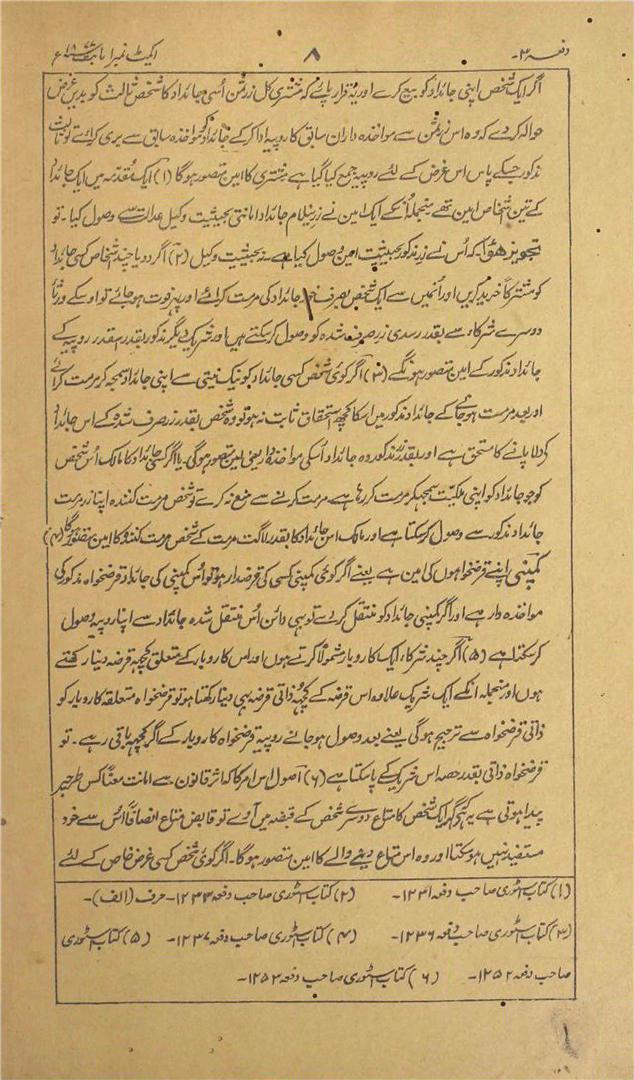 دفعہ ۳- ۸ ایکٹ نمبر ۱ بابت ۱۸۷۷ع
اگر ایک شخص اپنی جائداد کو بیع کرے اور یہ قرار پائے کہ مشتری کل زر ثمن اُسی جائداد کا شخص ثالث کو بدیں غرض
حوالہ کر دے کہ وہ اس زر ثمن سے مواخذہ داران سابق کا روپیہ ادا کر کے جائداد کو مواخذہ سابق سے بری کرائے تو ثالث
مذکور جسکے پاس اس غرض کے لئے روپیہ جمع کیا گیا ہے مشتری کا امین متصور ہوگا (۱) ایک مقدمہ میں ایک جائداد
کے تین اشخاص امین تھے منجملہ اُنکے ایک امین نے زر نیلام جائداد امانتی بحیثیت وکیل عدالت سے وصول کیا - تو
تجویز ھوا - کہ اُس نے زر مذکور بحیثیت امین وصول کیا ہے - نہ بحیثیت وکیل (۲) اگر دو یا چند اشخاص کسی جائداد
کو مشترکاً خرید کریں اور اُنمیں سے ایک شخص بصرف خود جائداد کی مرمت کرائے اور پھر فوت ہو جائے تو اوسکے ورثا
دوسرے شرکاء سے بقدر رسدی زر صرف شدہ کو وصول کر سکتے ہیں اور شریک دیگر مذکور بقدر اسقدر روپیہ کے
جائداد مذکور کے امین متصور ہونگے (۳) اگر کوئی شخص کسی جائداد کو نیک نیتی سے اپنی جائداد سمجھ کر مرمت کرائے
اور بعد مرمت ہو جانے کے جائداد مذکور میں اسکا کچھ استحقاق ثابت نہ ہو تو وہ شخص بقدر زر صرف شدہ کے اس جائداد
کو دلا پانے کا مستحق ہے اور بقدر زر مذکور وہ جائداد اُسکی مواخذہ دار یعنی امین متصور ہوگی - یا اگر کسی جائداد کا مالک اُس شخص
کو جو جائداد کو اپنی ملکیت سمجھکر مرمت کر رہا ہے مرمت کرنے سے منع نہ کرے تو شخص مرمت کنندہ اپنا زر مرمت
جائداد مذکور سے وصول کر سکتا ہے اور مالک اس جائداد کا بقدر لاگت مرمت کے شخص مرمت کنندہ کا امین متصور ہوگا (۴)
کمپنی اپنے قرضخواہوں کی امین ہے یعنے اگر کوئی کمپنی کسی کی قرضدار ہو تو اُس کمپنی کی جائداد قرضخواہ مذکور کی
مواخذہ دار ہے اور اگر کمپنی جائداد کو منتقل کر دے تو بھی دائن اُس منتقل شدہ جائداد سے اپنا روپیہ وصول
کر سکتا ہے (۵) اگر چند شرکاء ایک کاروبار شمولاً کرتے ہوں اور اس کاروبار کے متعلق کچھ قرضہ دینا رکھتے
ہوں اور منجملہ انکے ایک شریک علاوہ اس قرضہ کے کچھ ذاتی قرضہ بھی دینا رکھتا ہو تو قرضخواہ متعلقہ کاروبار کو
ذاتی قرضخواہ سے ترجیح ہوگی یعنے بعد وصول ہو جانے روپیہ قرضخواہ کاروبار کے اگر کچھ باقی رہے - تو
قرضخواہ ذاتی بقدر حصہ اس شریک کے پا سکتا ہے (۶) اصول اس امر کا کہ اثر قانون سے امانت معناً کس طرح پر
پیدا ہوتی ہے یہ کہ اگر ایک شخص کا متاع دوسرے شخص کے قبضہ میں آوے تو قابض متاع انصافاً اُس سے خود
مستفید نہیں ہو سکتا اور وہ اس متاع دینے والے کا امین متصور ہوگا - اگر کوئی شخص کسی غرض خاص کے لئے
(۱) کتاب اسٹوری صاحب دفعہ ۱۲۳۱- (۲) کتاب اسٹوری صاحب دفعہ ۱۲۳۴- حرف (الف)-
(۳) کتاب اسٹوری صاحب دفعہ ۱۲۳۶- (۴) کتاب اسٹوری صاحب دفعہ ۱۲۳۷- (۵) کتاب اسٹوری
صاحب دفعہ ۱۲۵۲- (۶) کتاب اسٹوری صاحب دفعہ ۱۲۵۲-